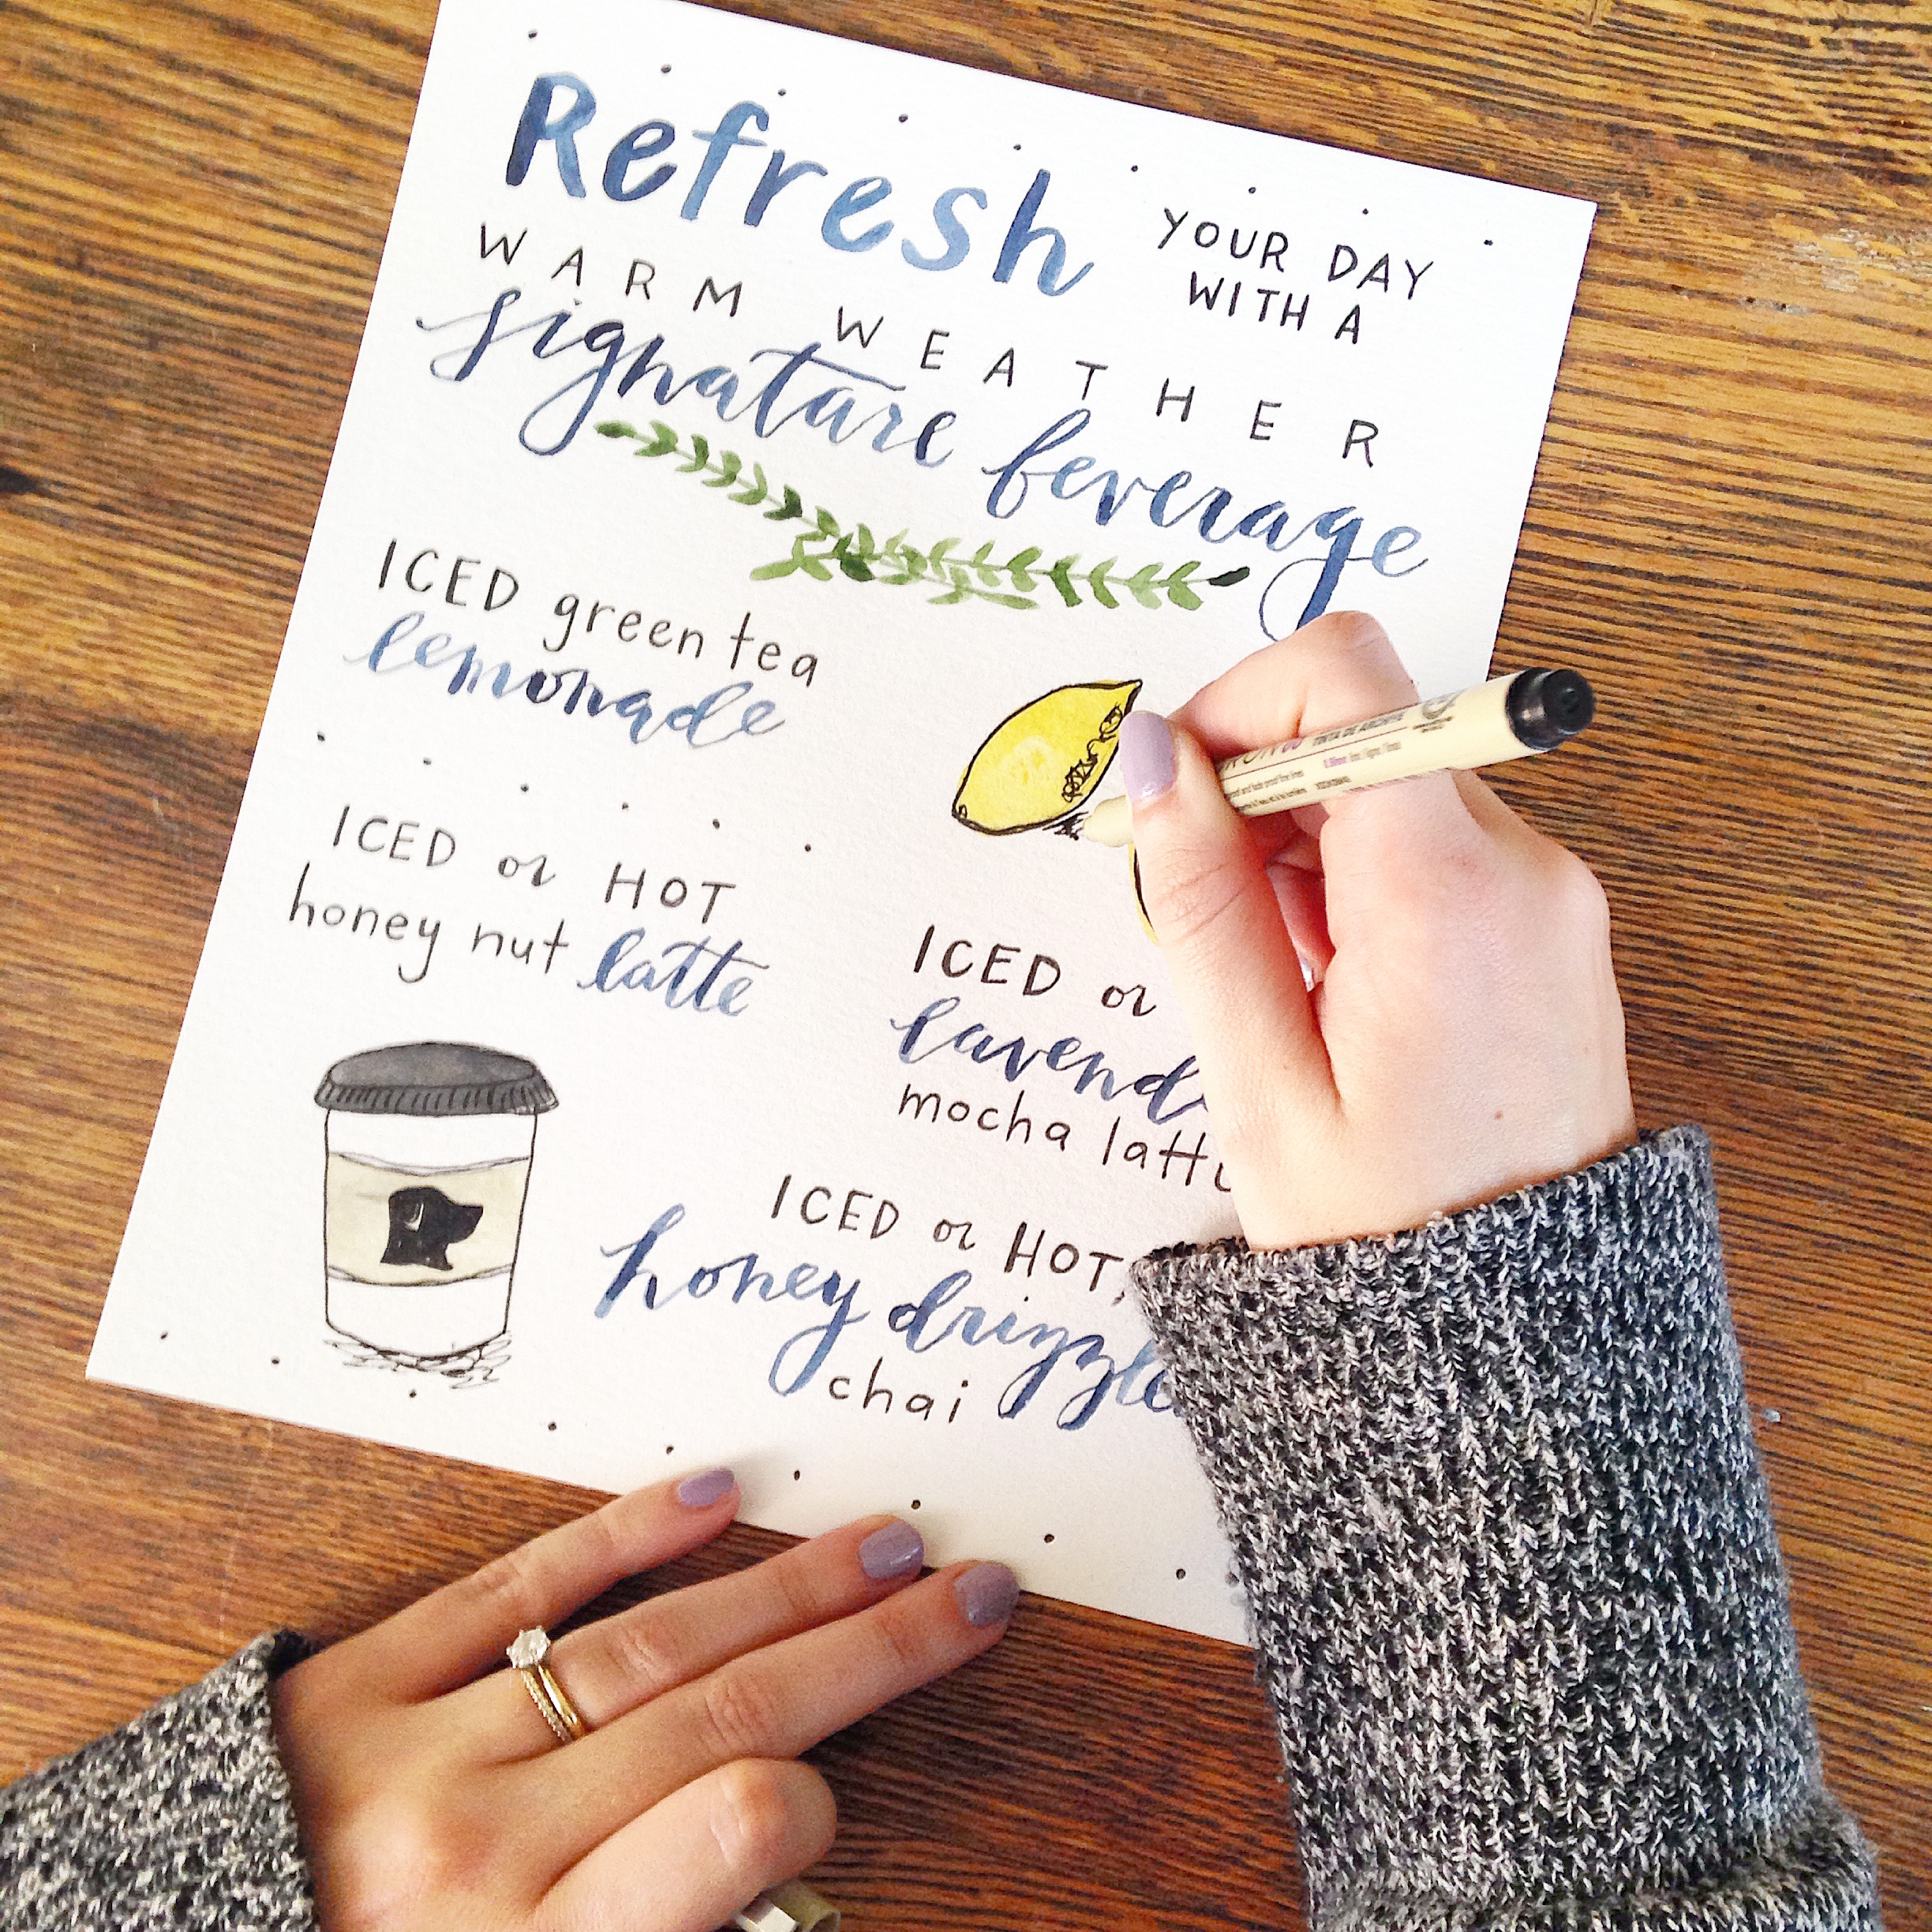 Refresh YOUR DAY
WITH A
WARM WEATHER
signature beverage
ICED green tea
lemonade
ICED or HOT
honey nut latte
ICED or
mocha latte
ICED or HOT
honey drizzle
chai